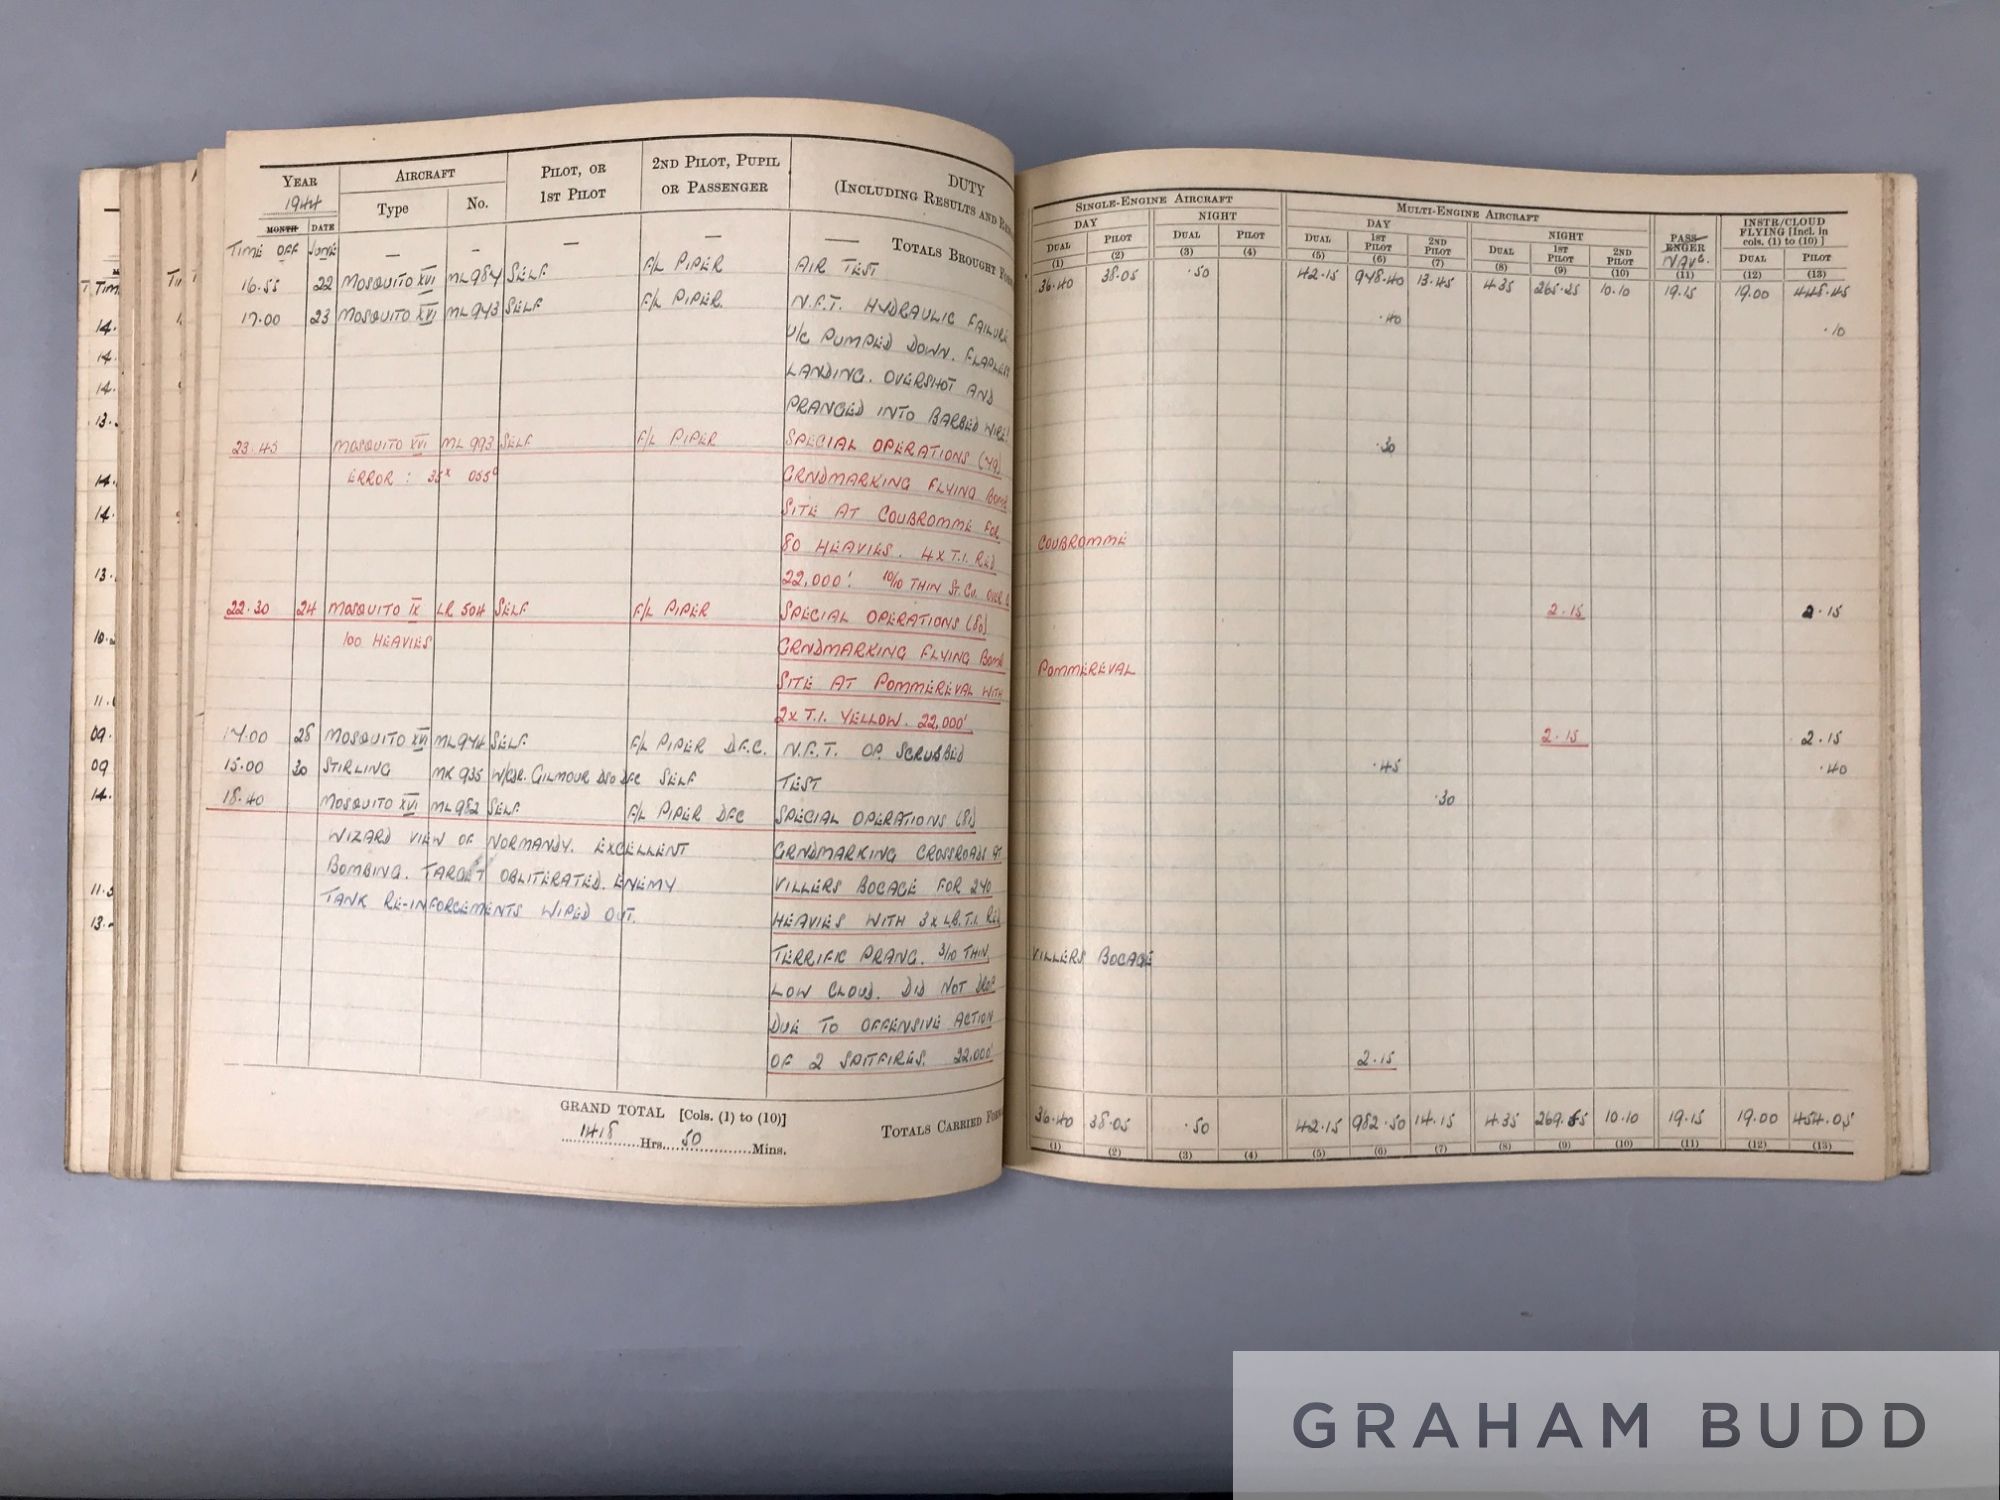 YEAR AIRCRAFT PILOT, OR 2ND PILOT, PUPIL DUTY
1944 Type No. 1ST PILOT OR PASSENGER (INCLUDING RESULTS AND
MONTH DATE
TIME OFF JUNE — — — — — TOTALS BROUGHT
16.55 22 MOSQUITO XVI ML984 SELF F/L PIPER AIR TEST
17.00 23 MOSQUITO XVI ML943 SELF F/L PIPER N.F.T. HYDRAULIC FAILURE
U/C PUMPED DOWN. FLAPLESS
LANDING. OVERSHOT AND
PRANGED INTO BARBED WIRE!
23.45 MOSQUITO XVI ML993 SELF F/L PIPER SPECIAL OPERATIONS (79)
ERROR : 35x 055° GRNDMARKING FLYING BOMB
SITE AT COUBROMME FOR
80 HEAVIES. 4x T.I. RED
22,000'. 10/10 THIN ST. CU. OVER
22.30 24 MOSQUITO IX LR 504 SELF F/L PIPER SPECIAL OPERATIONS (80)
100 HEAVIES GRNDMARKING FLYING BOMB
SITE AT POMMEREVAL WITH
2x T.I. YELLOW. 22,000'
17.00 28 MOSQUITO XVI ML974 SELF F/L PIPER D.F.C. N.F.T. OP. SCRUBBED
15.00 30 STIRLING MK 935 W/CDR. GILMOUR DSO DFC SELF TEST
18.40 MOSQUITO XVI ML982 SELF F/L PIPER DFC SPECIAL OPERATIONS (81)
WIZARD VIEW OF NORMANDY. EXCELLENT GRNDMARKING CROSSROADS AT
BOMBING. TARGET OBLITERATED. ENEMY VILLERS BOCAGE FOR 240
TANK RE-INFORCEMENTS WIPED OUT. HEAVIES WITH 3x L.B. T.I. RED
TERRIFIC PRANG. 3/10 THIN
LOW CLOUD. DID NOT DROP
DUE TO OFFENSIVE ACTION
OF 2 SPITFIRES. 22,000'
GRAND TOTAL [Cols. (1) to (10)] TOTALS CARRIED
1418 Hrs. 50 Mins.
SINGLE-ENGINE AIRCRAFT MULTI-ENGINE AIRCRAFT PASSENGER INSTR/CLOUD
FLYING [Incl. in
cols. (1) to (10)]
DAY NIGHT DAY NIGHT NAVG.
DUAL PILOT DUAL PILOT DUAL 1ST PILOT 2ND PILOT DUAL 1ST PILOT 2ND PILOT DUAL PILOT
(1) (2) (3) (4) (5) (6) (7) (8) (9) (10) (11) (12) (13)
36.40 38.05 .50 42.15 978.40 13.45 4.35 265.25 10.10 19.15 19.00 448.45
.40 .10
.30
COUBROMME
2.15 2.15
POMMEREVAL
2.15 2.15
.45 .40
.30
VILLERS BOCAGE
2.15
36.40 38.05 .50 42.15 982.50 14.15 4.35 269.55 10.10 19.15 19.00 454.05
(1) (2) (3) (4) (5) (6) (7) (8) (9) (10) (11) (12) (13)
GRAHAM BUDD